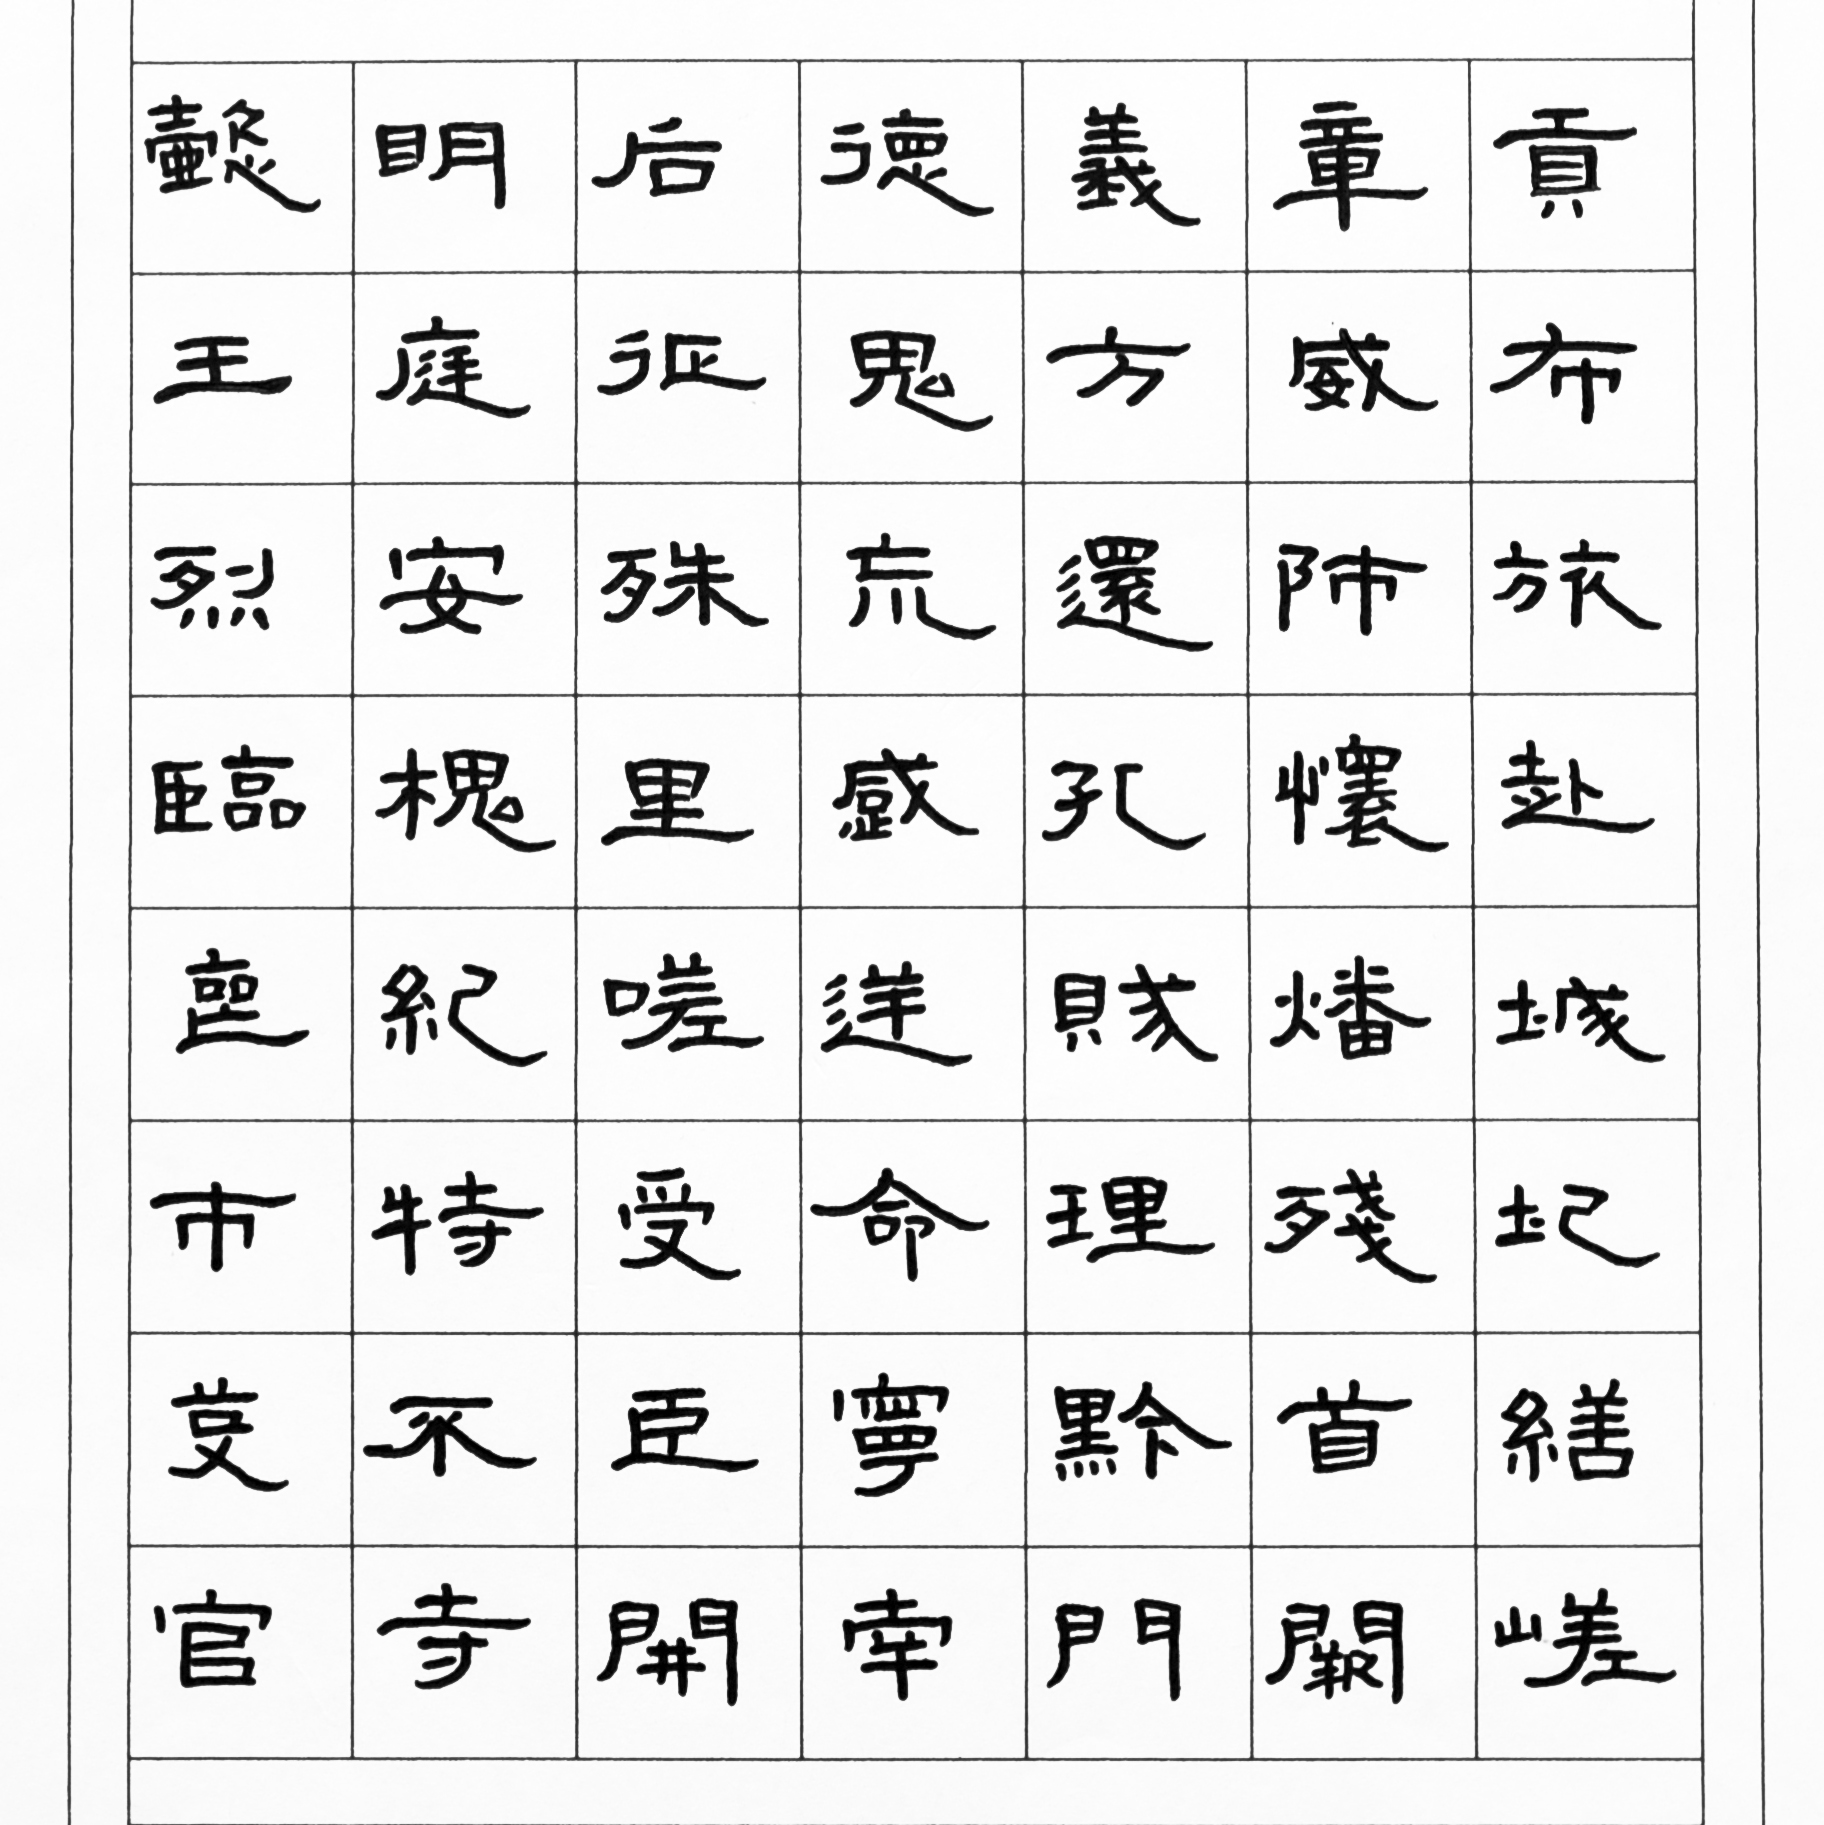 懿明后德義章貢
王庭征鬼方威布
烈安殊荒還師旅
臨槐里感孔懷赴
喪紀嗟逆賊燔城
市特受命理殘圮
芟不臣寧黔首繕
官寺開南門闕嵯